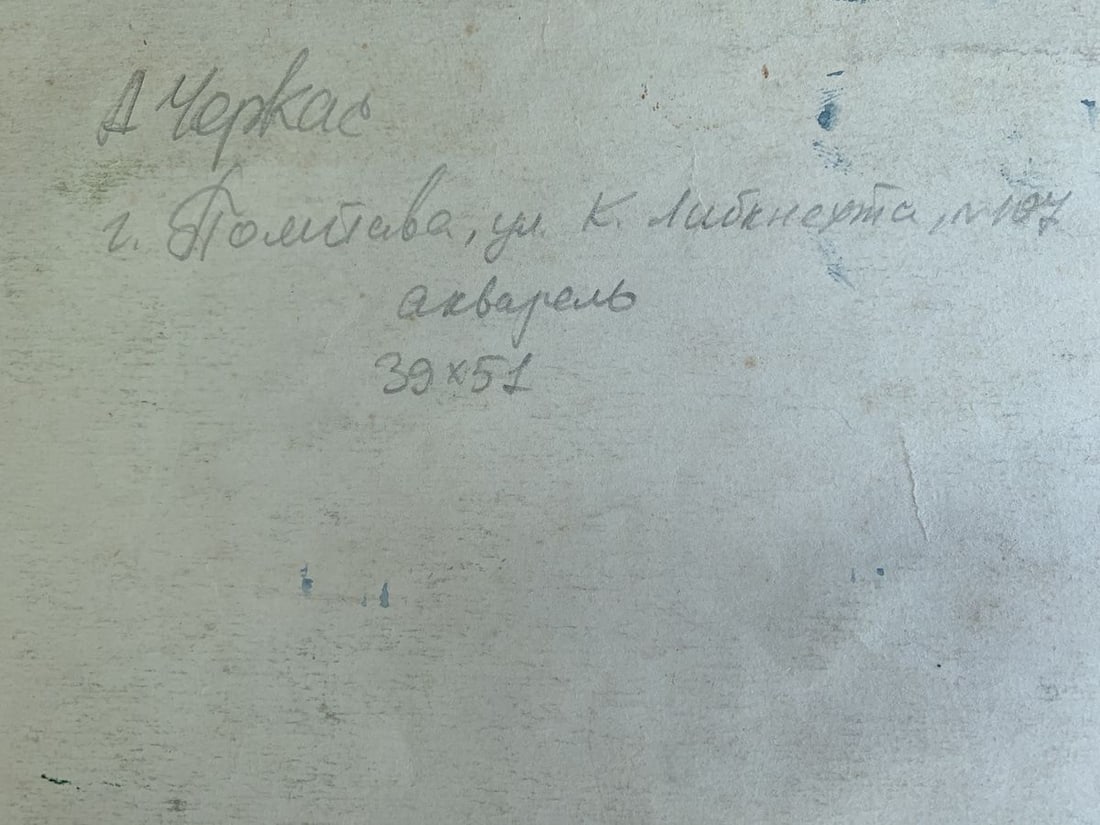 А Черкас
г. Полтава, ул. К. Либкнехта, №107
акварель
39х51